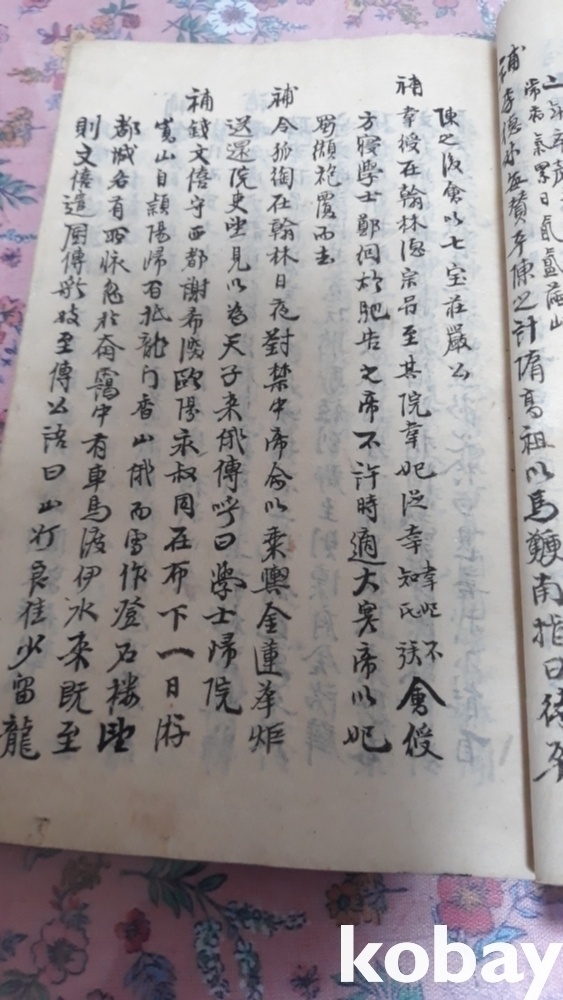 補李德林每贊平陳之計隋高祖以馬鞭南指曰待平
陳之後會以七宝莊嚴公
補韋綬在翰林德宗常至其院韋妃從幸韋妃不知氏族會綬
方寢學士鄭絪欲馳告之帝不許時適大寒帝以妃
蜀襭袍覆而去
補令狐綯在翰林日夜對禁中帝命以乘輿金蓮華炬
送還院吏望見以為天子來俄傳呼曰學士歸院
補錢文僖守西都謝希深歐陽永叔同在布下一日游
嵩山自潁陽歸百抵龍门香山俄而雪作登石樓望
都城各有所懷忽於奄靄中有車馬渡伊水來既至
則文僖遣廚傳歌妓至傳公語曰山行良佳少留龍
kobay